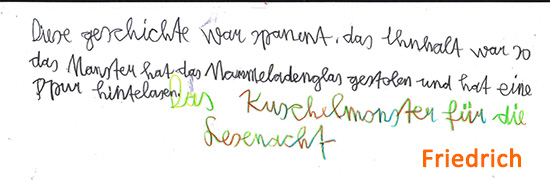 Diese geschichte war spanent. das Ihnhalt war so
das Manster hat das Mammeladenglas gestolen und hat eine
Spur hintelasen. Das Kuschelmonster für die
Lesenacht
Friedrich